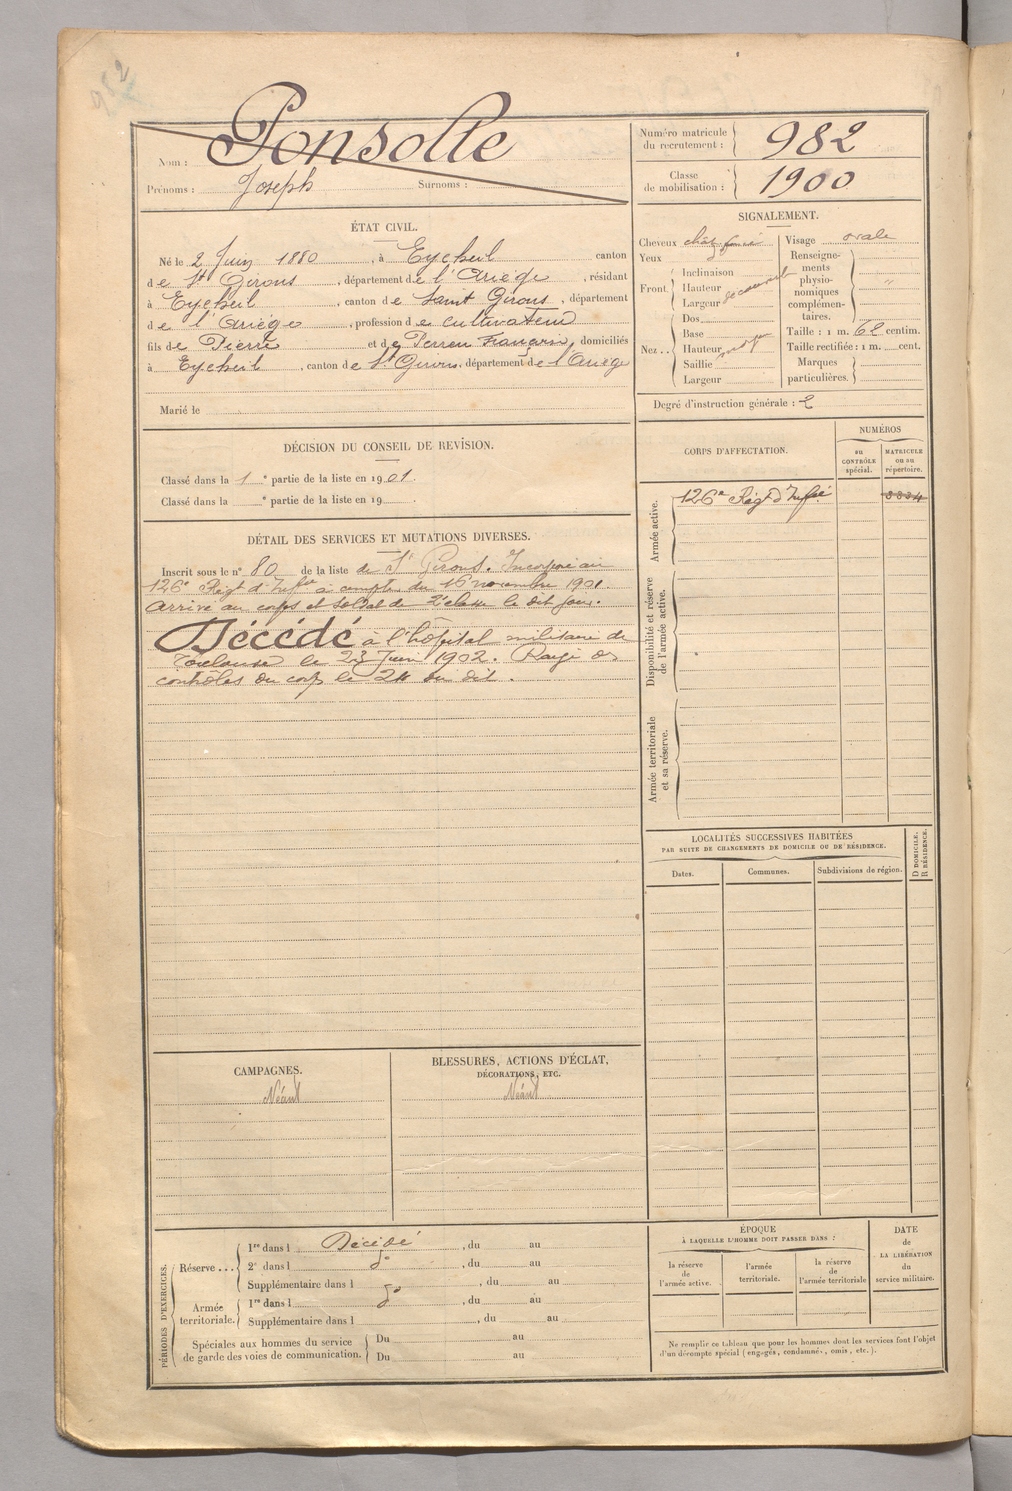 982
Nom : Ponsolle
Prénoms : Joseph Surnoms :
Numéro matricule du recrutement : 982
Classe de mobilisation : 1900
ÉTAT CIVIL.
Né le 2 Juin 1880, à Eycheil canton
de St Girons, département de l'Ariège, résidant
à Eycheil, canton de Saint Girons, département
de l'Ariège, profession de cultivateur
fils de Pierre et de Françoise, domiciliés
à Eycheil, canton de St Girons, département de l'Ariège
Marié le
SIGNALEMENT.
Cheveux chât.
Yeux
Front. Inclinaison
Hauteur
Largeur découvert
Nez .. Dos
Base
Hauteur moyen
Saillie
Largeur
Visage ovale
Renseignements physionomiques complémentaires. "
Taille : 1 m. 62 centim.
Taille rectifiée : 1 m. cent.
Marques particulières.
Degré d'instruction générale : 2
DÉCISION DU CONSEIL DE REVISION.
Classé dans la 1e partie de la liste en 1901.
Classé dans la e partie de la liste en 19 .
DÉTAIL DES SERVICES ET MUTATIONS DIVERSES.
Inscrit sous le n° 80 de la liste de St Girons. Incorporé au
126e Régt d'Infie à compter du 16 novembre 1901.
Arrivé au corps et soldat de 2e classe le dit jour.
Décédé à l'hôpital militaire de
Toulouse le 23 Juin 1902. Rayé des
contrôles du corps le 24 du dit.
CORPS D'AFFECTATION.
NUMÉROS
au CONTRÔLE spécial.
MATRICULE ou au répertoire.
Armée active.
126e Régt d'Infie
Disponibilité et réserve de l'armée active.
Armée territoriale et sa réserve.
LOCALITÉS SUCCESSIVES HABITÉES
PAR SUITE DE CHANGEMENTS DE DOMICILE OU DE RÉSIDENCE.
Dates. Communes. Subdivisions de région. D DOMICILE. R RÉSIDENCE.
CAMPAGNES.
Néant
BLESSURES, ACTIONS D'ÉCLAT,
DÉCORATIONS, ETC.
Néant
PÉRIODES D'EXERCICES.
Réserve ... 1re dans l Décédé, du au
2e dans l do, du au
Supplémentaire dans l , du au
Armée territoriale. 1re dans l do, du au
Supplémentaire dans l , du au
Spéciales aux hommes du service de garde des voies de communication. Du au
Du au
ÉPOQUE
À LAQUELLE L'HOMME DOIT PASSER DANS :
la réserve de l'armée active.
l'armée territoriale.
la réserve de l'armée territoriale
DATE
de
LA LIBÉRATION
du
service militaire.
Ne remplir ce tableau que pour les hommes dont les services font l'objet
d'un décompte spécial (engagés, condamnés, omis, etc.).